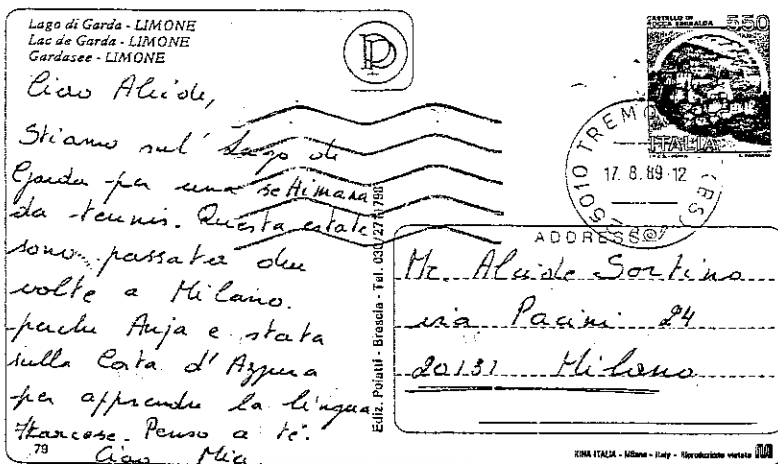 Lago di Garda - LIMONE
Lac de Garda - LIMONE
Gardasee - LIMONE
Ciao Alcide,
Stiamo sul' Lago di
Garda per una settimana
da tennis. Questa estate
sono passata due
volte a Milano.
perche Anja e stata
sulla Costa d'Azzura
per apprendre la lingua
francese. Penso a te.
Ciao Mia
79
Ediz. Poiatti - Brescia - Tel.
CASTELLO DI
ROCCA SINIBALDA
550
ITALIA
25010 TREMO (BS)
17.8.89-12
ADDRESS
Mr. Alcide Sortino
via Pacini 24
20131 Milano
KINA ITALIA - Milano - Italy - Riproduzione vietata